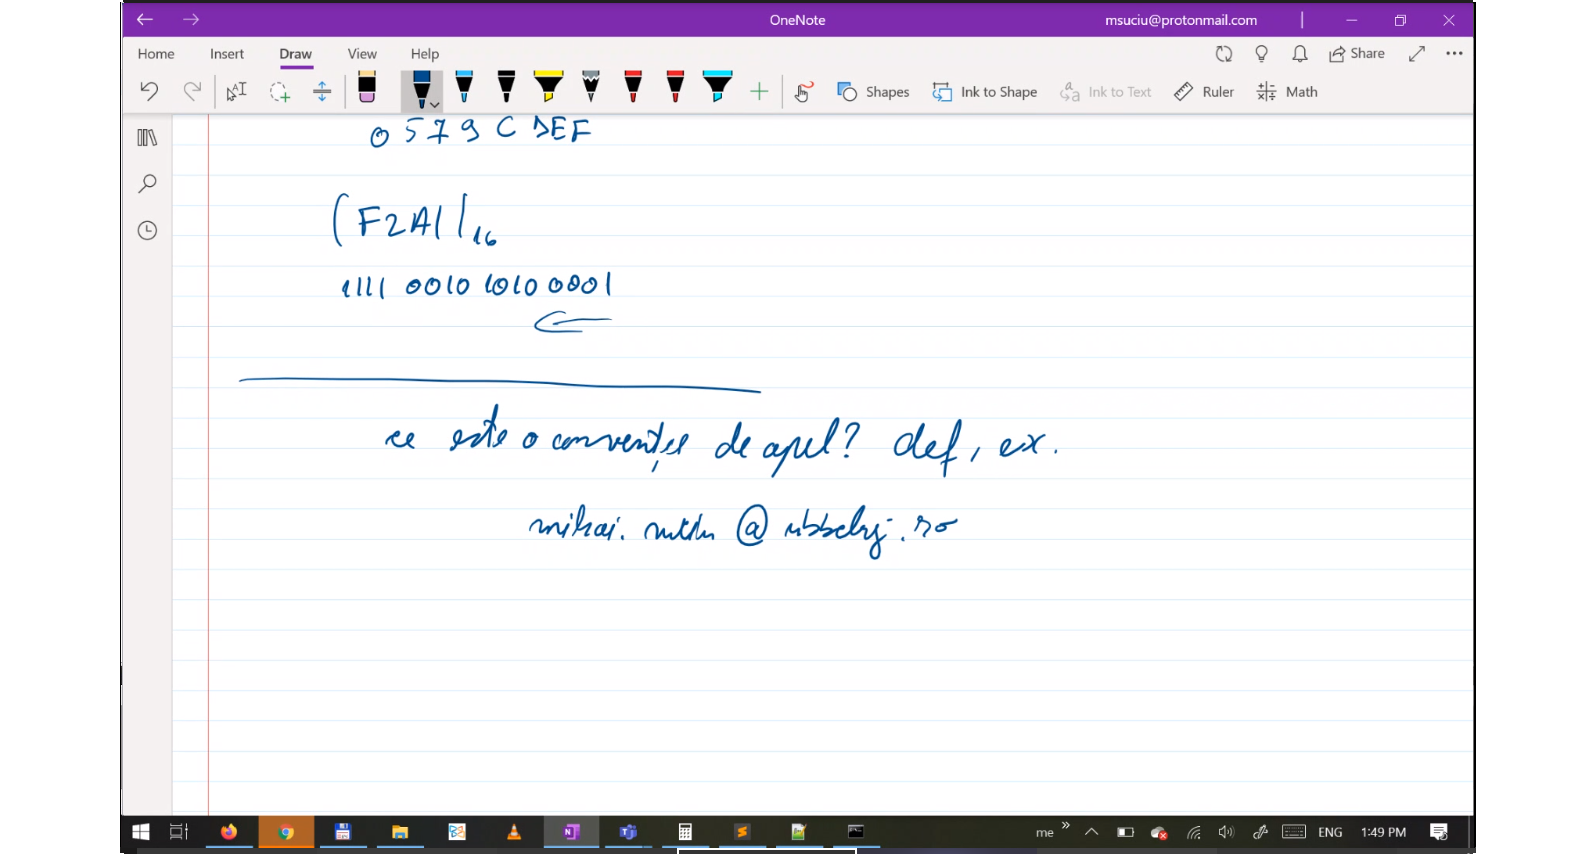 OneNote
msuciu@protonmail.com
Home Insert Draw View Help
Share
Shapes Ink to Shape Ink to Text Ruler Math
0 5 7 9 C D E F
(F2A1)16
1111 0010 1010 0001
ce este o convenție de apel? def, ex.
mihai.suciu @ ubbcluj.ro
me » ENG 1:49 PM